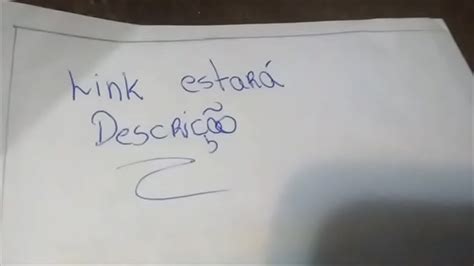 Link estará
Descrição